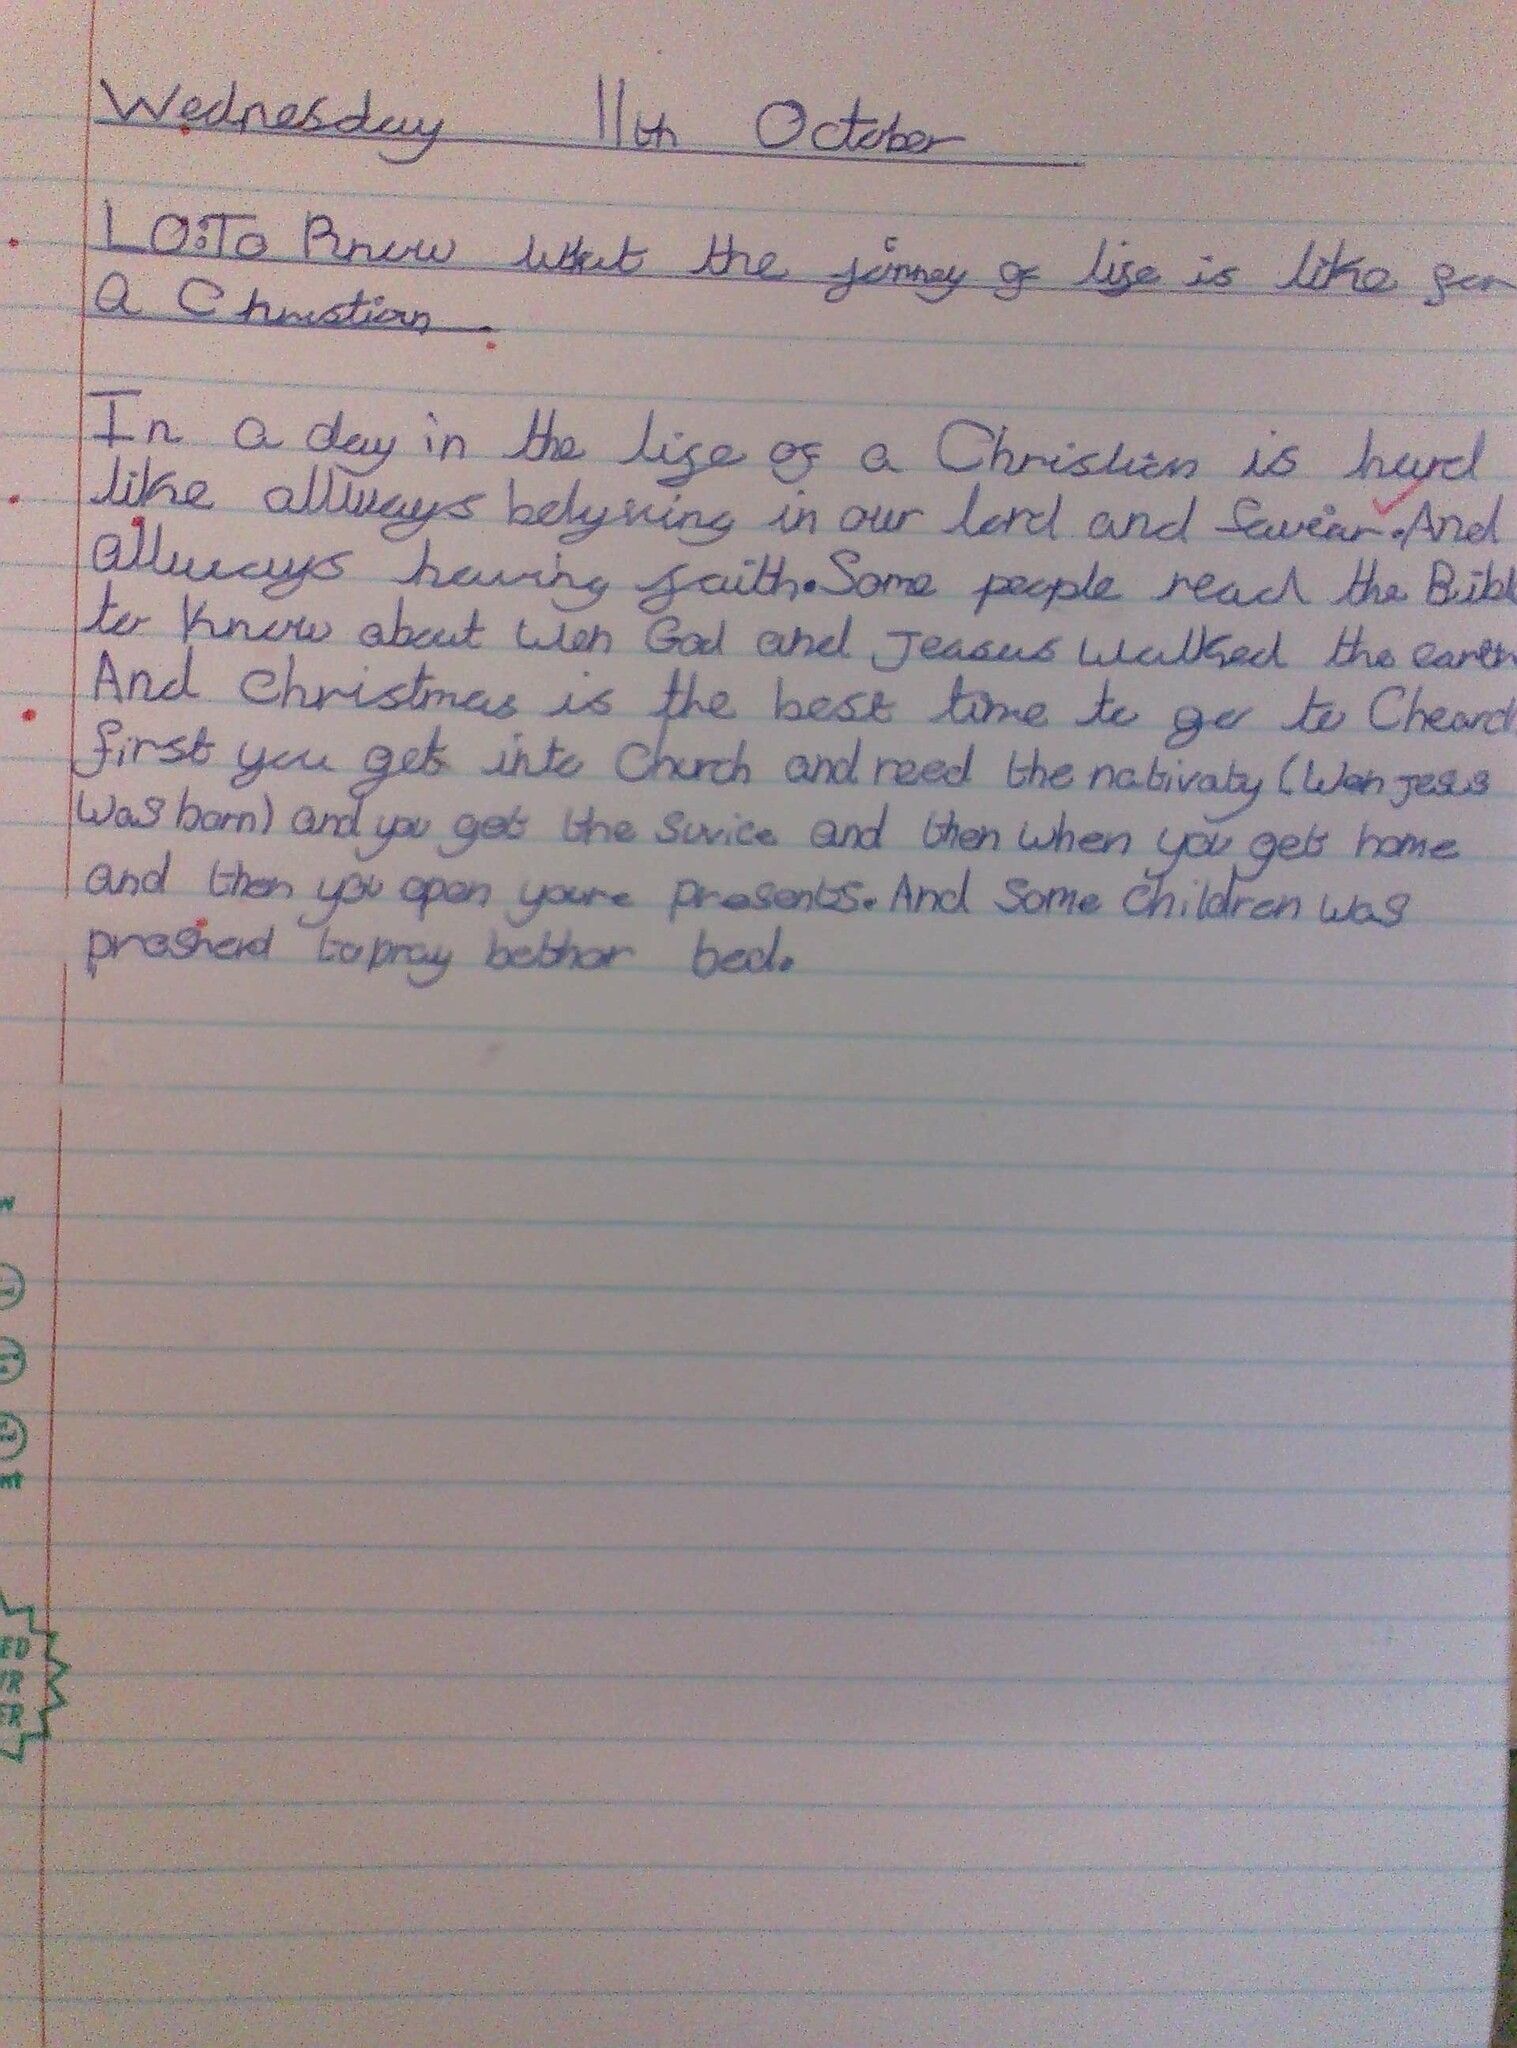 Wednesday 11th October
LO:To Know what the jorney of life is like for
a Christian.
In a day in the life of a Christian is hard
like allways belyving in our lord and Saviar. And
allways having faith. Some people read the Bibl
to Know about wen God and Jeasus walked the earth
And Christmas is the best time to go to Cheard
first you get into Church and reed the nativaty (Wen Jesis
Was born) and you get the survice and then when you get home
and then you open youre presents. And Some Children was
presherd to pray bethor bed.
ED
ER